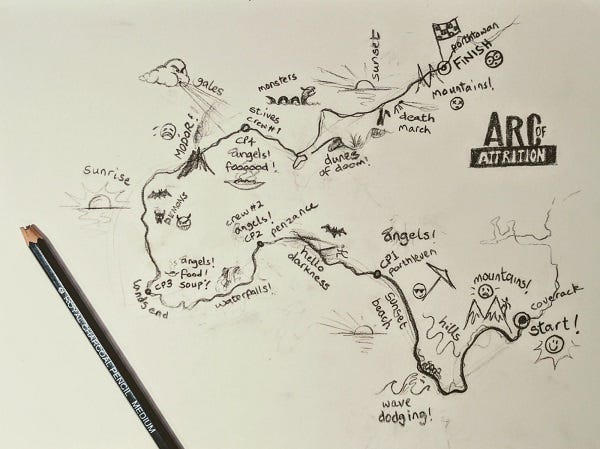 porthtowan
FINISH
mountains!
sunset
death
march
monsters
gales
st.ives
crew #1
CP4
angels!
foooood!
dunes
of doom!
MODOR!
ARC OF
ATTRITION
sunrise
DEMONS
crew #2
angels!
CP2
penzance
hello
darkness
angels!
CP1
porthleven
angels!
food!
CP3 soup?
lands end
waterfalls!
sunset
beach
hills
mountains!
coverack
start!
wave
dodging!
ROYAL CHARCOAL PENCIL MEDIUM